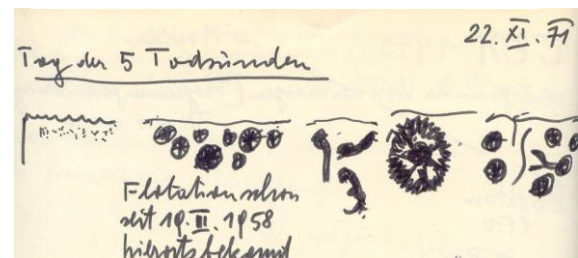 22. XI. 71
Tag der 5 Todsünden
Flotation schon
seit 19. III. 1958
hierorts bekannt